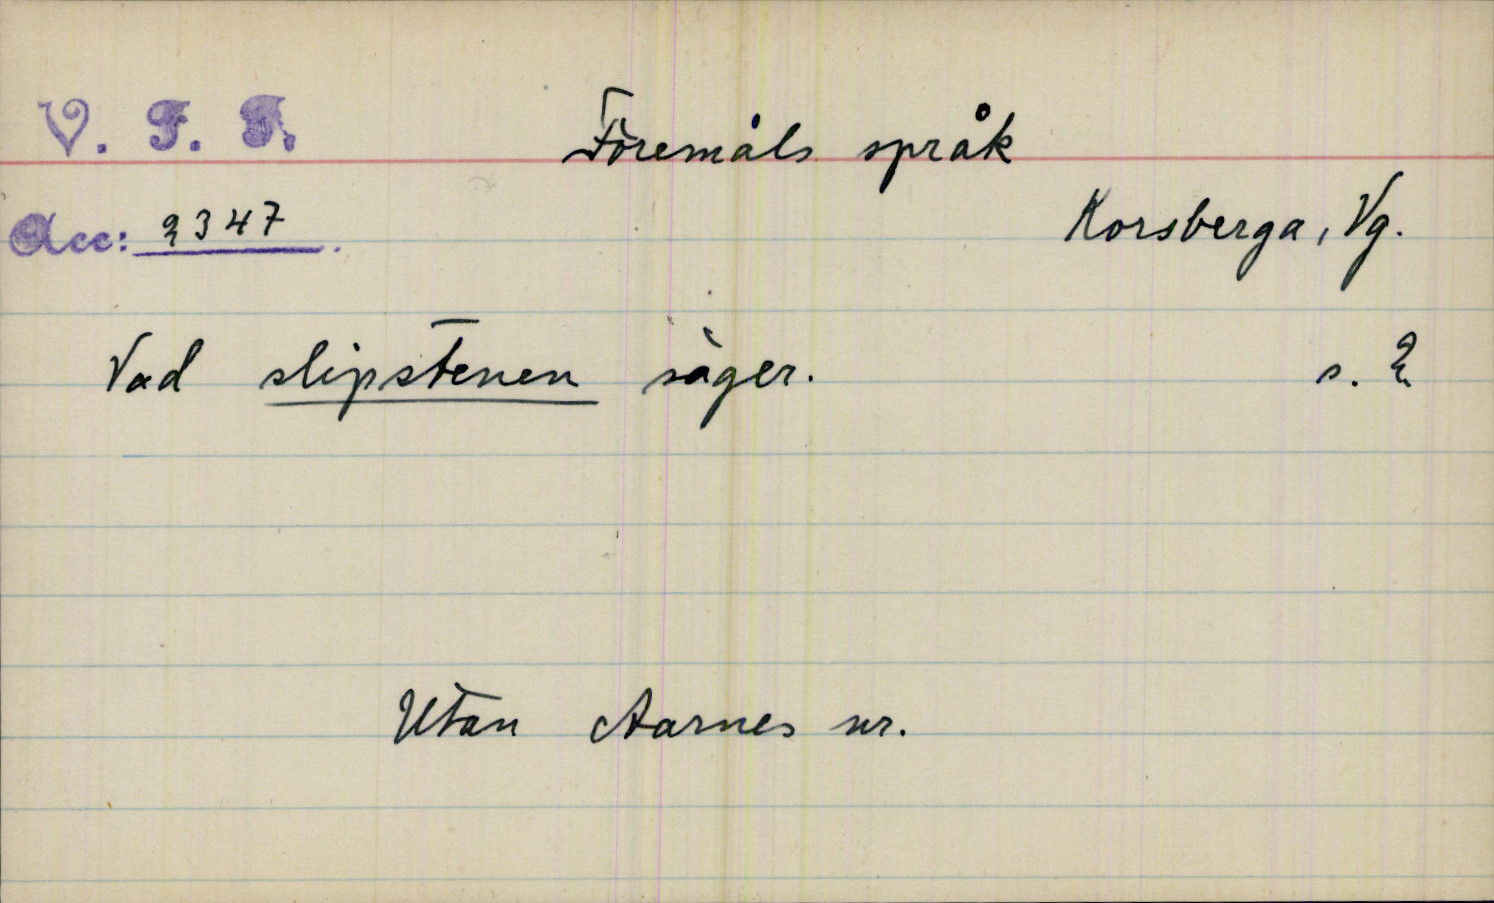 V. F. F.
Föremåls språk
Acc: 2347.
Korsberga, Vg.
Vad slipstenen säger.
s. 2
Utan Aarnes nr.